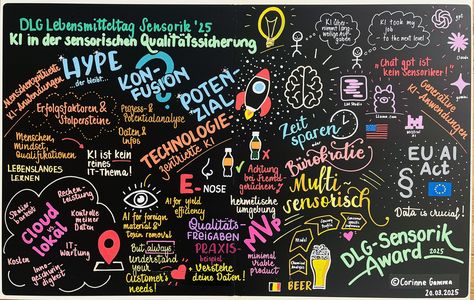 DLG Lebensmitteltag Sensorik '25
KI in der sensorischen Qualitätssicherung
Menschenzentrierte
KI-Anwendungen
HYPE
der bleibt...
KON
FUSION
POTEN-
ZIAL
Erfolgsfaktoren &
Stolpersteine
Prozess- &
Potentialanalyse
Daten &
Infos
TECHNOLOGIE-
zentrierte KI
Menschen,
mindset,
Qualifikationen
LEBENSLANGES
LERNEN
KI ist kein
reines
IT-Thema!
KI über-
nimmt lang-
weilige Auf-
gaben
KI took my
job
to the next level
"Chat gpt ist
kein Sensoriker!"
Generative
KI-Anwendungen
LM Studio
Llama
mistral
Zeit
sparen
oder
Bürokratie
Multi
sensorisch
EU AI
Act
§
Data is crucial!
E-NOSE
Achtung
bei fremd
gerüchen!
hermetische
umgebung
Cloud
vs
lokal
Rechen-
leistung
Kontrolle
meiner
Daten
IT-
Wartung
Kosten
AI for foreign
material &
toxin removal
AI for yield
efficiency
But always
understand
your
Customer's
needs!
Qualitäts
FREIGABEN
PRAXIS
beispiel
+ Verstehe
deine Daten!
MVP
minimal
viable
product
Model
BEER
DLG-Sensorik
Award 2025
© Corinne Gamma
20.03.2025